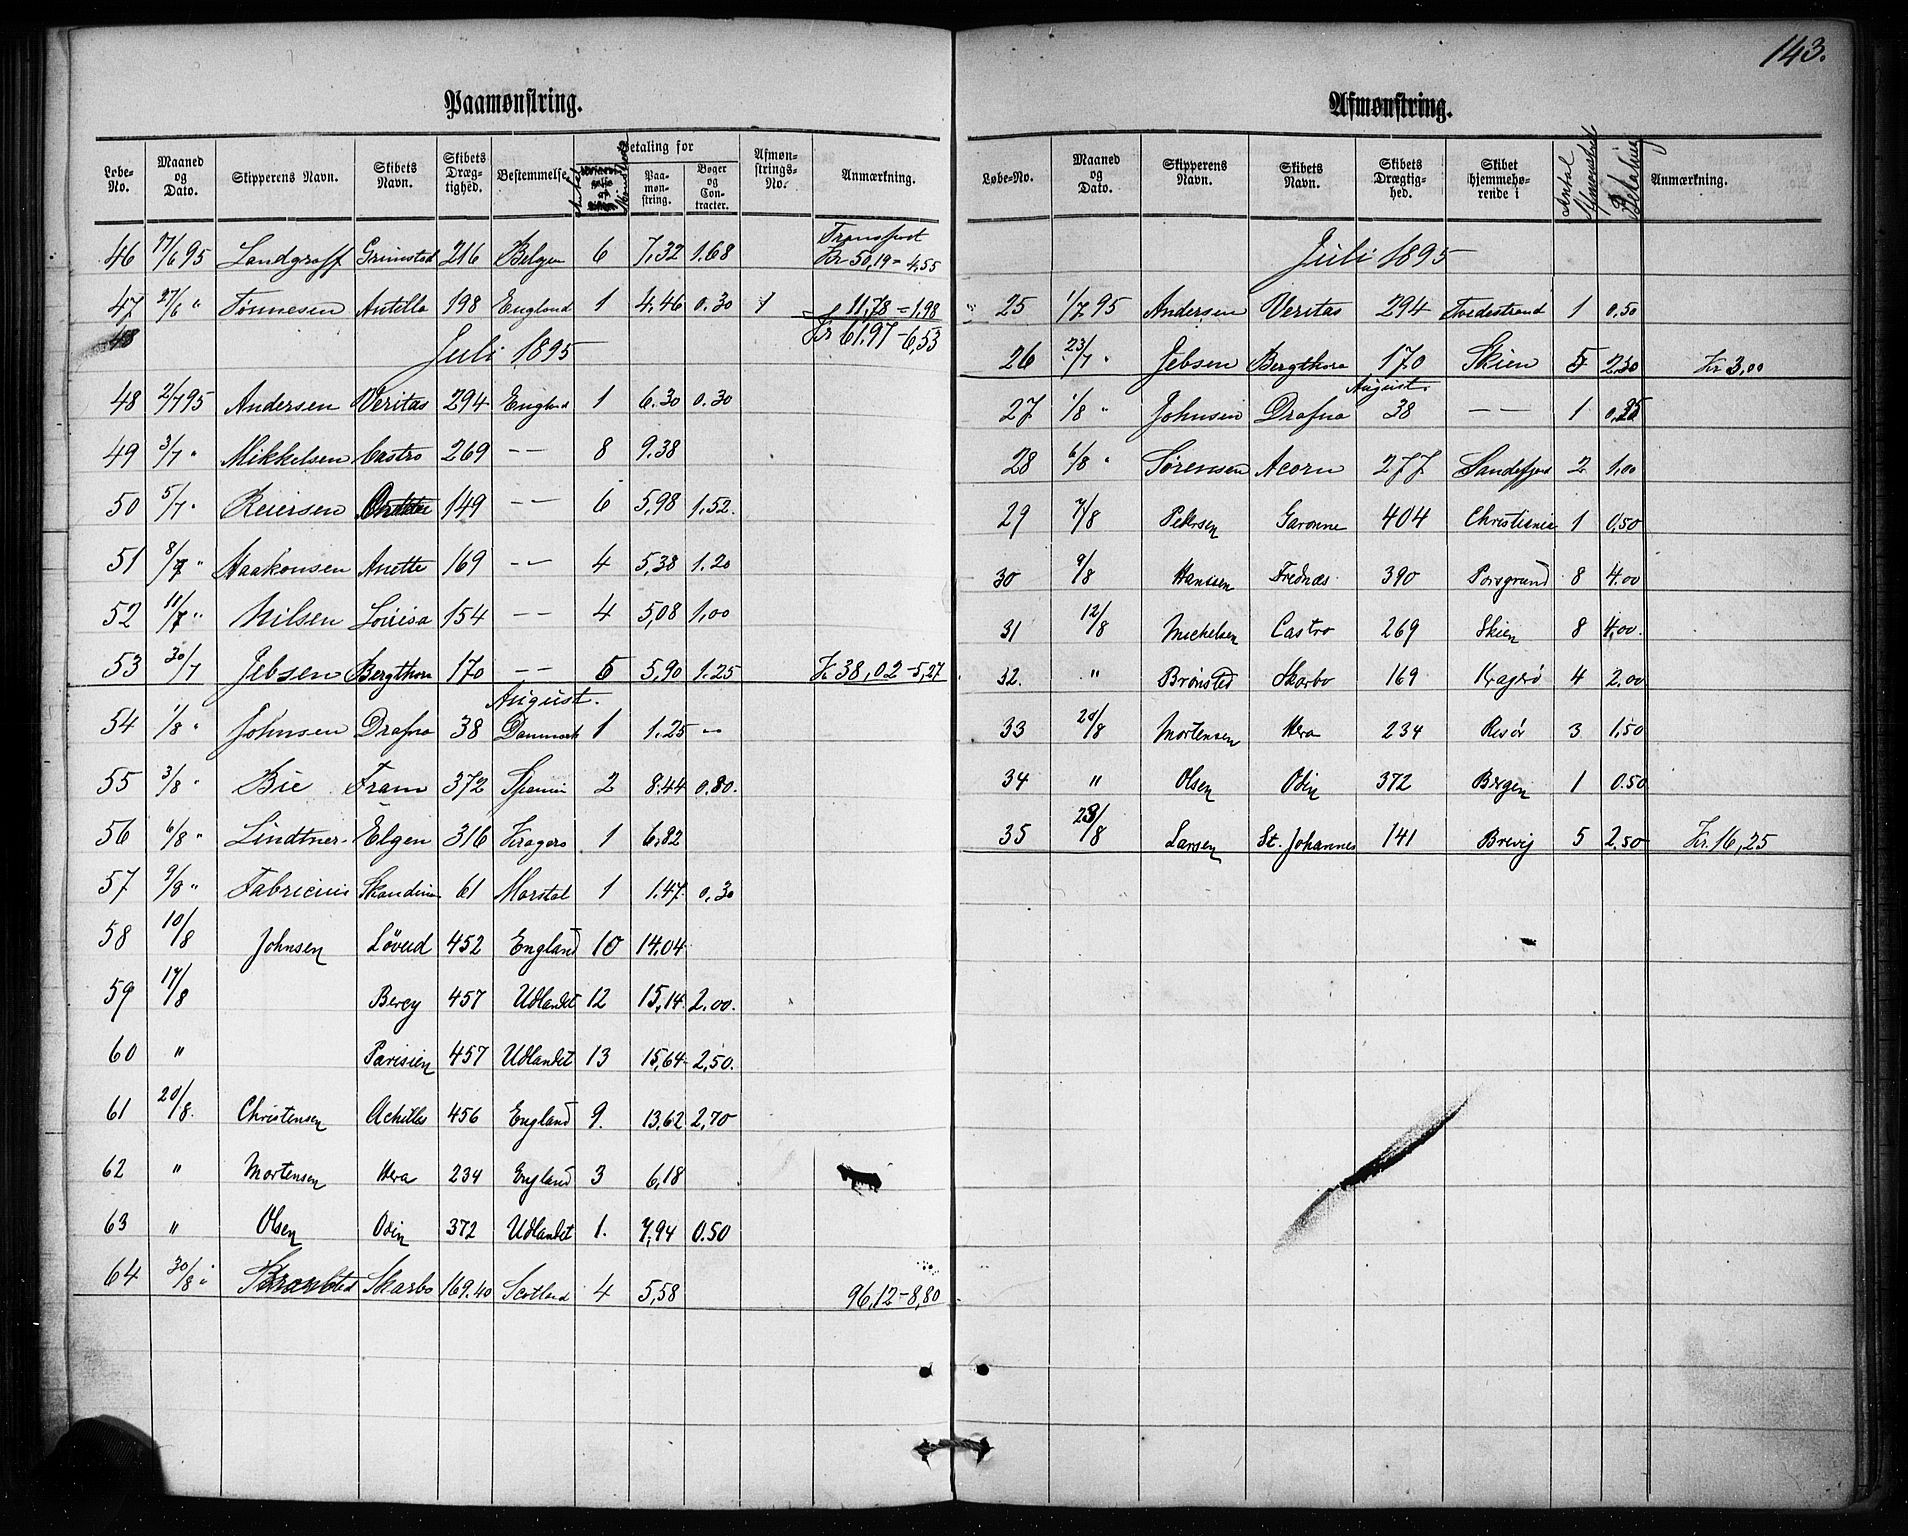 143.
Paamønstring.
Løbe-No. Maaned og Dato. Skipperens Navn. Skibets Navn. Skibets Dræg-tighed. Bestemmelse. Antal Mønstrede Betaling for Paa-møn-string. Bøger og Con-tracter. Afmøn-strings-No. Anmærkning.
46 17/6 95 Landgraff Grimstad 216 Belgien 6 7,32 1.68 Transport Kr 50,19 - 4,55
47 27/6 " Tønnesen Antilla 198 England 1 4.46 0.30 1 11,78 = 1,98
48 Kr 61.97 - 6,53
Juli 1895
48 2/7 95 Andersen Veritas 294 England 1 6.30 0.30
49 3/7 " Mikkelsen Castro 269 - - 8 9.38
50 5/7 " Reiersen 149 - - 6 5,98 1,52.
51 8/7 " Haakonsen Anette 169 - - 4 5,38 1.20
52 11/7 " Nilsen Lovisa 154 - - 4 5,08 1,00
53 30/7 Jebsen Bergthora 170 - - 5 5,90 1.25 Kr 38,02 - 5,27
August.
54 1/8 " Johnsen Drafna 38 Danmark 1 1.25 -
55 3/8 " Bie Fram 372 Spanien 2 8.44 0.80.
56 6/8 " Lindtner Elgen 316 Kragerø 1 6.82
57 9/8 " Fabricius Skandinav 61 Marstal 1 1.47 0,30
58 10/8 Johnsen Løvud 452 England 10 14,04
59 17/8 Bercy 457 Udlandet 12 15,14 2.00.
60 " Parisien 457 Udlandet 13 15,64 2,50.
61 20/8. Christensen Achilles 456 England 9. 13,62 2,70
62 " Mortensen Hera 234 England 3 6,18
63 " Olsen Odin 372 Udlandet 1. 7,94 0.50
64 30/8 " Brønsted Skarbo 169.40 Scotland 4 5,58 96,12 - 8,80
Afmønstring.
Løbe-No. Maaned og Dato. Skipperens Navn. Skibets Navn. Skibets Drægtig-hed. Skibet hjemmehø-rende i Antal Afmønstred Betaling Anmærkning.
Juli 1895
25 1/7 95 Andersen Veritas 294 Tvedestrand 1 0,50
26 23/7 " Jebsen Bergthora 170 Skien 5 2.50 Kr 3,00
August.
27 1/8 " Johnsen Drafna 38 - - 1 0,25
28 6/8 " Sørensen Acorn 277 Sandefjord 2 1,00
29 7/8 Petersen Garonne 404 Christiania 1 0,50
30 9/8 Hanssen Frednæs 390 Porsgrund 8 4.00
31 12/8 Michelsen Castro 269 Skien 8 4,00.
32. " Brønsted Skarbo 169 Kragerø 4 2.00
33 20/8 Mortensen Hera 234 Risør 3 1,50
34 " Olsen Odin 372 Bergen 1 0.50
35 23/8 Larsen St. Johannes 141 Brevig 5 2,50 Kr. 16,25